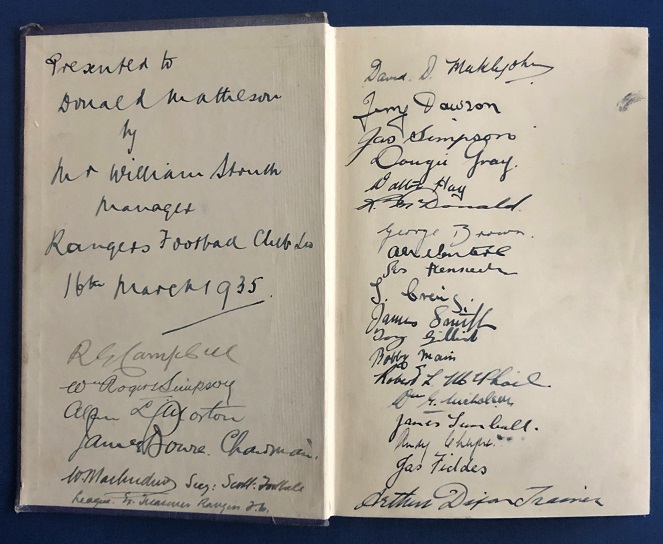 Presented to
Donald Mathieson
by
Mr William Struth
Manager
Rangers Football Club Ld
16th March 1935.
R G Campbell
Wm Roger Simpson
Alan L Morton
James Bowie. Chairman.
Secy: Scott: Football
League. Ex. Treasurer Rangers F.C.
David D. Meiklejohn
Jerry Dawson
Jas Simpson
Dougie Gray.
Hay
R. McDonald.
George Brown.
Jas Kennedy
T. Craig.
James Smith
Torry Gillick
Bobby Main
Robert L McPhail.
Wm G. Nicholson
James Turnbull.
Jas Fiddes
Arthur Dixon Trainer